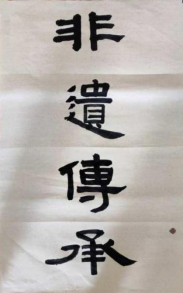 非遺傳承